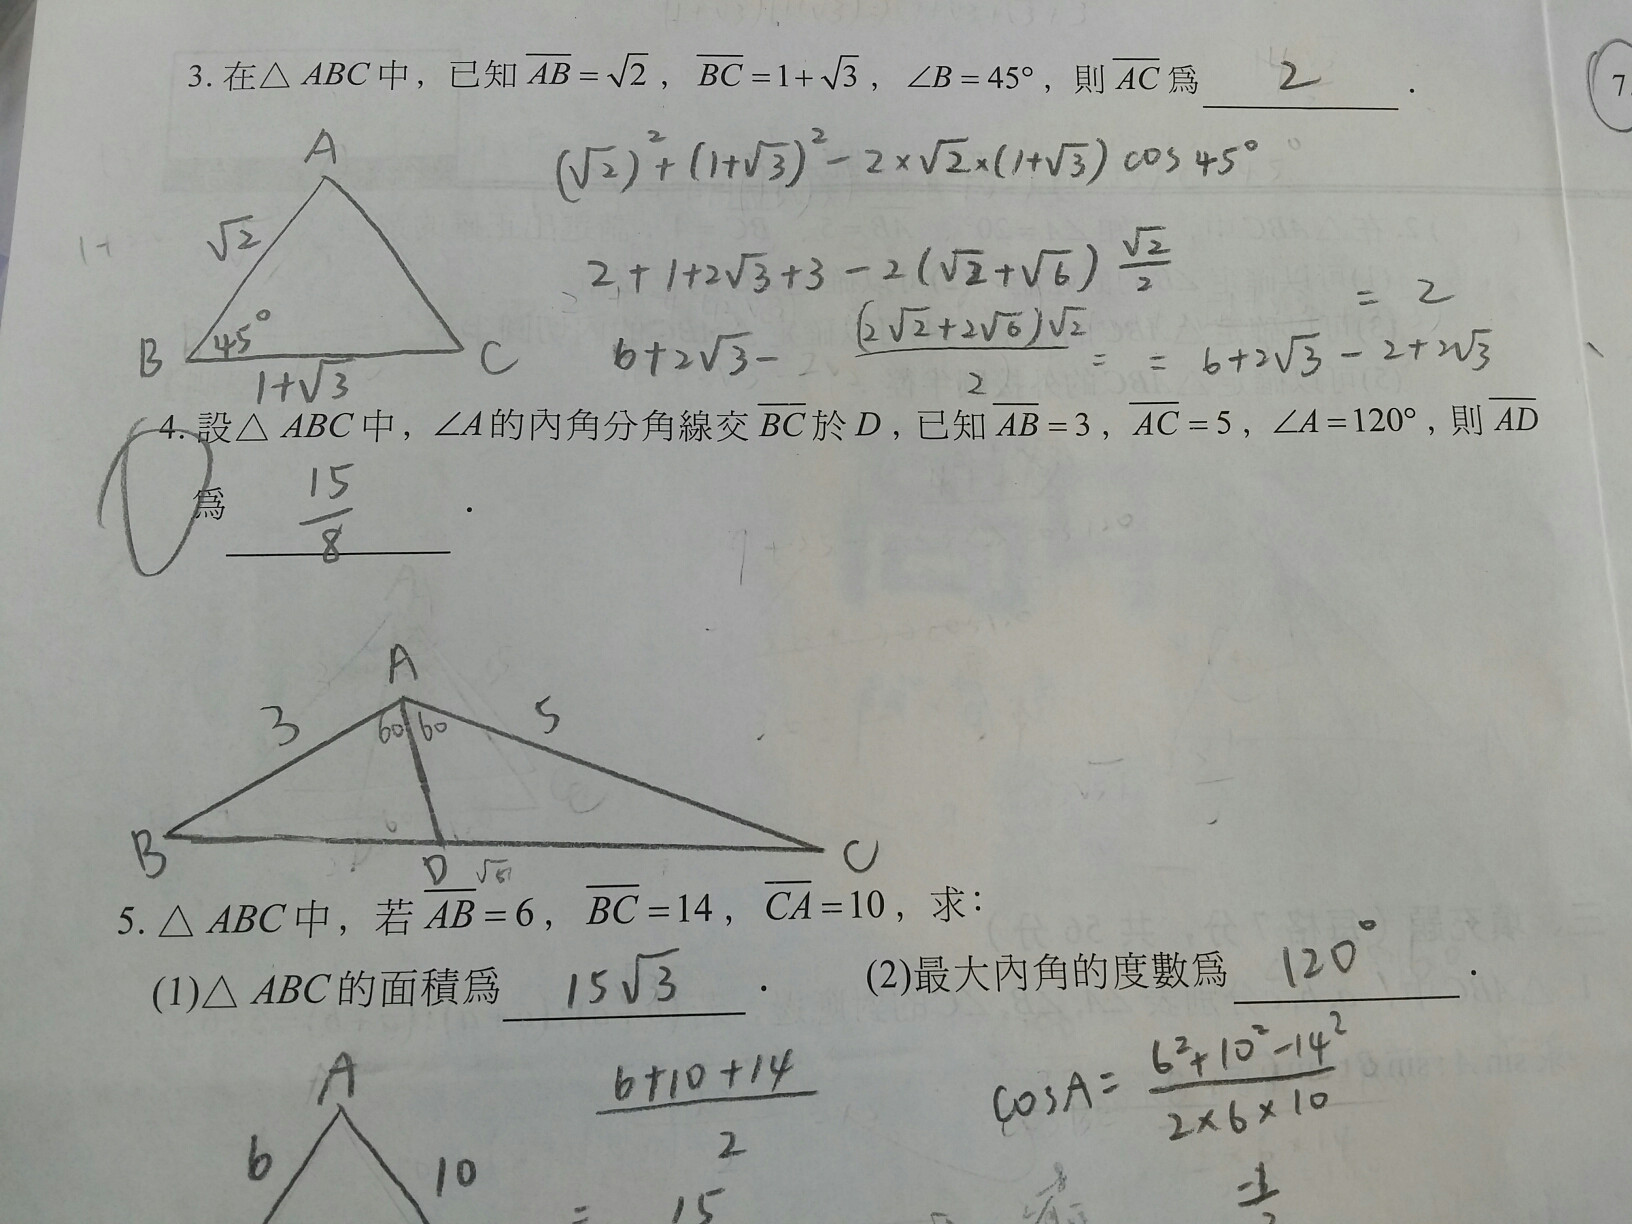 3. 在△ ABC 中，已知 AB = √2，BC = 1 + √3，∠B = 45°，則 AC 爲 2 .
7.
A
(√2)² + (1+√3)² − 2×√2×(1+√3) cos 45°
√2
2 + 1+2√3+3 − 2(√2+√6) √2/2
= 2
B 45° C
6+2√3 − (2√2+2√6)√2/2 = = 6+2√3 − 2+2√3
1+√3
4. 設△ ABC 中，∠A 的內角分角線交 BC 於 D，已知 AB = 3，AC = 5，∠A = 120°，則 AD
爲 15/8 .
A
3 60 60 5
B D C
5. △ ABC 中，若 AB = 6，BC = 14，CA = 10，求：
(1)△ ABC 的面積爲 15√3 . (2)最大內角的度數爲 120° .
A
6+10+14/2
cosA = 6²+10²−14²/2×6×10
6 10
= 15